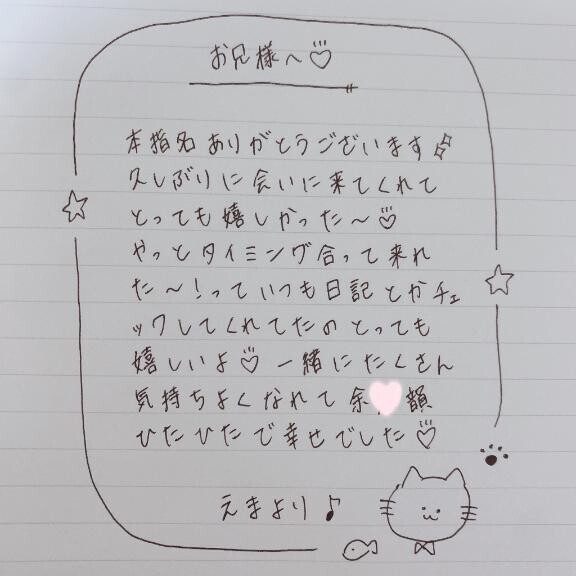 お兄様へ♡
本指名ありがとうございます
久しぶりに会いに来てくれて
とっても嬉しかった〜♡
やっとタイミング合って来れ
た〜!っていつも日記とかチェ
ックしてくれてたのとっても
嬉しいよ♡ 一緒にたくさん
気持ちよくなれて余韻
ひたひたで幸せでした♡
えまより♪